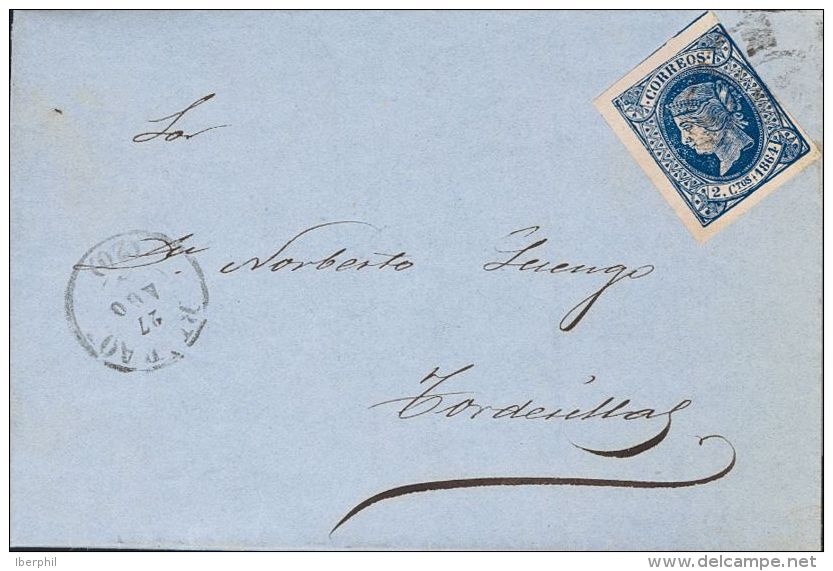 CORREOS
2. CTOS. 1864
Sor
Dn Norberto Luengo
Tordesillas
27
AGO
(20)
Iberphil
delcampe.net